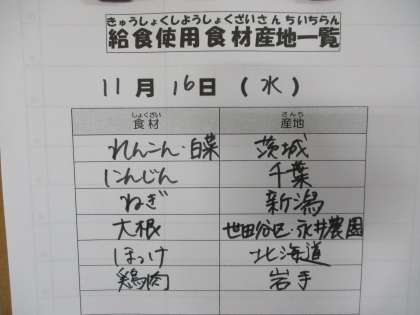 きゅうしょくしようしょくざいさんちいちらん
給食使用食材産地一覧
11月16日(水)
しょくざい さんち
食材 産地
れんこん・白菜 茨城
にんじん 千葉
ねぎ 新潟
大根 世田谷区・永井農園
ほっけ 北海道
鶏肉 岩手